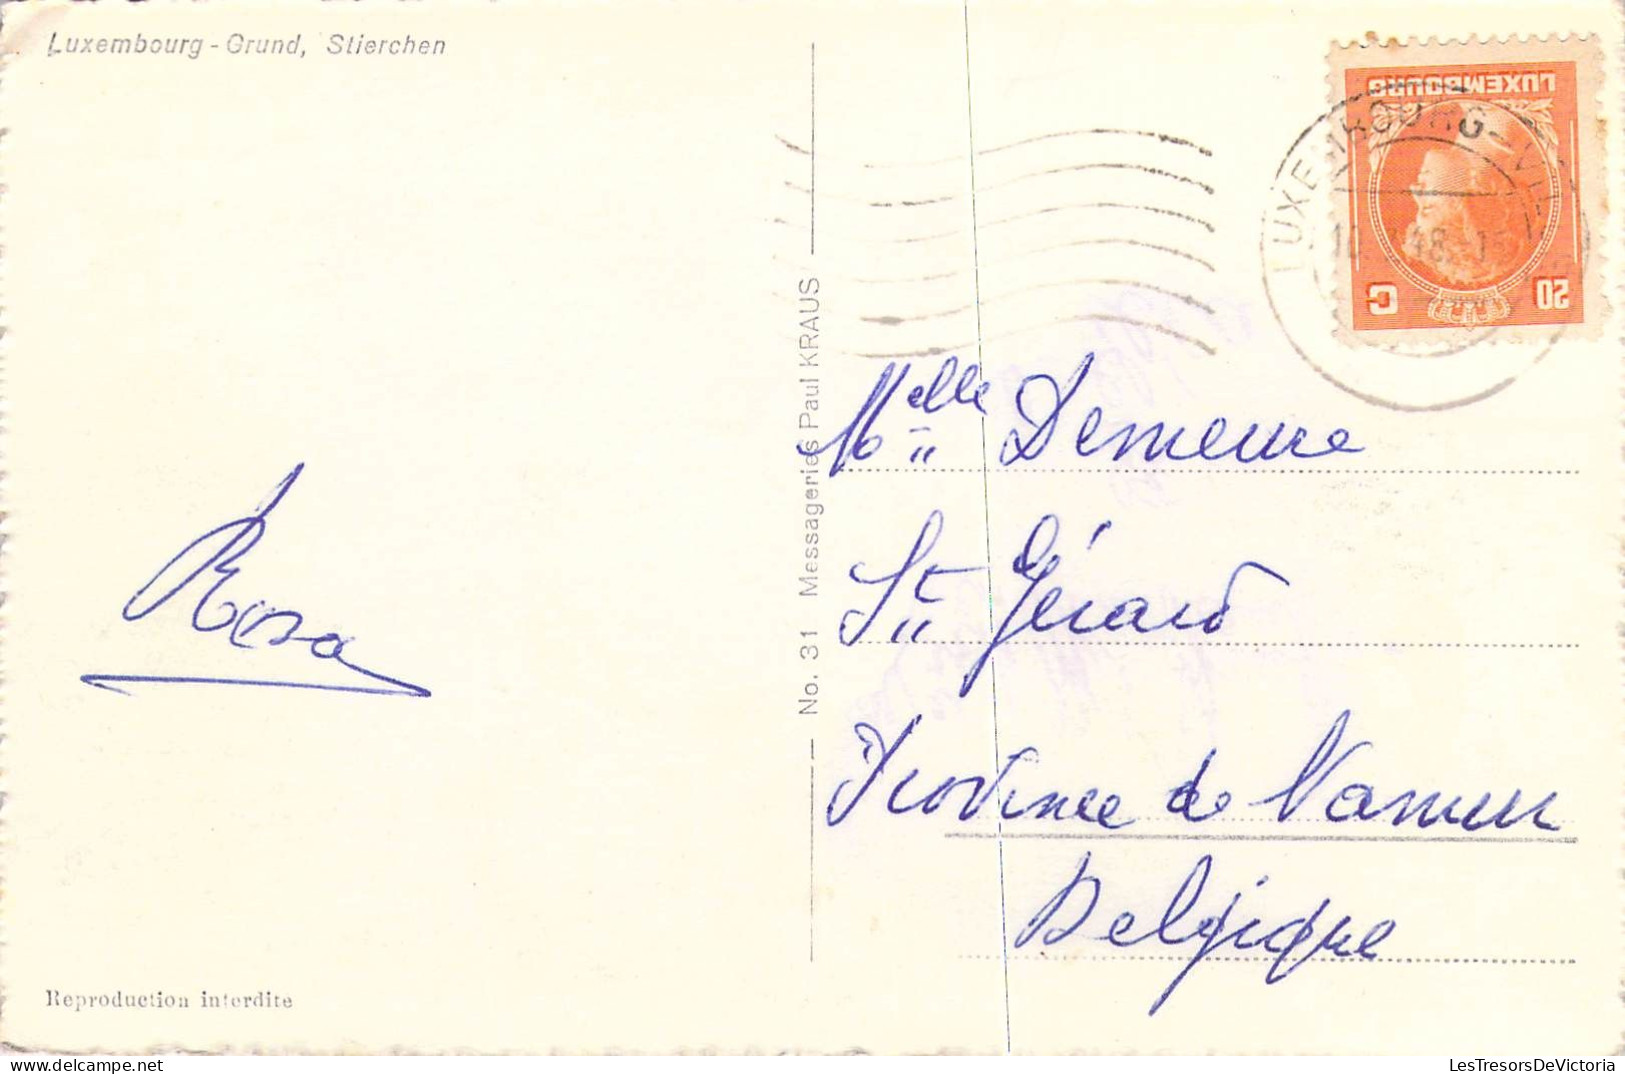 Luxembourg - Grund, Stierchen
LUXEMBOURG
20 C
LUXEMBOURG-VILLE
No. 31 Messageries Paul KRAUS
Melle Demeure
St Gérard
Province de Namur
Belgique
Rosa
Reproduction interdite
LesTresorsDeVictoria